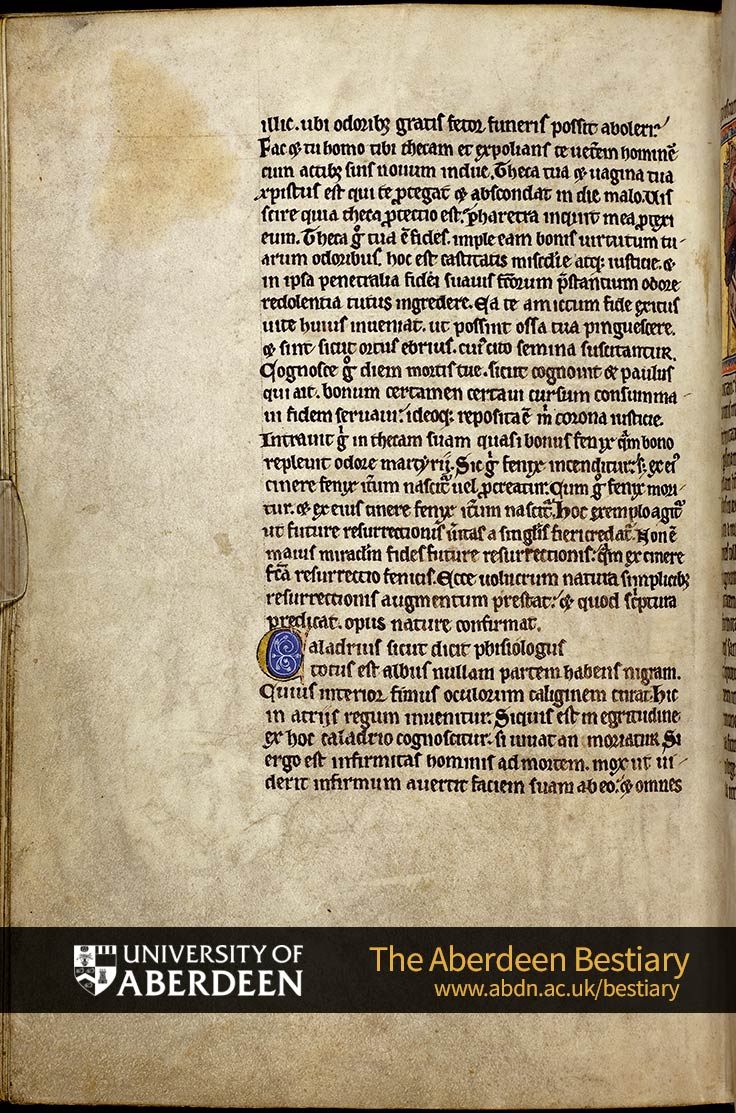 illic. ubi odoribꝫ gratis fetor funeris possit aboleri.
Fac ⁊ tu homo tibi thecam et expolians te uet̄em hominē
cum actibꝫ suis nouum indue. Theca tua ⁊ uagina tua
xpistus est qui te ꝓtegat ⁊ abscondat in die malo. Uis
scire quia theca ꝓtectio est. pharetra inquit mea ꝓtexi
eum. Theca gͦ tua ē fides. imple eam bonis uirtutum tu-
arum odoribus. hoc est castitatis misc̄die atqꝫ iusticie. ⁊
in ipsa penetralia fidei suauis f̄corum p̄stantium odore
redolentia tutus ingredere. Ea te amictum fide exitus
uite huius inueniat. ut possint ossa tua pinguescere.
⁊ sint sicut ortus ebrius. cui᷒ cito semina suscitantur.
Cognosce gͦ diem mortis tue. sicut cognouit ⁊ paulus
qui ait. bonum certamen certaui cursum consumma-
ui fidem seruaui. ideoqꝫ reposita ē m̄ corona iusticie.
Intrauit gͥ in thecam suam quasi bonus fenyx qͣm bono
repleuit odore martyrij. Sic gͥ fenyx incenditur. sꝫ ex ei᷒
cinere fenyx it̄um nascit᷑ uel ꝓcreatur. Cum gͦ fenyx mori-
tur. ⁊ ex eius cinere fenyx it̄um nascit᷑. hoc exemplo agit᷑
ut future resurrectionis ūitas a singĺis fieri credat᷑. Non ē
maius miraclm̄ fides future resurrectionis. qͣm ex cinere
fc̄a resurrectio fenicis. Ecce uolucrum natura simplicibꝫ
resurrectionis augmentum prestat. ⁊ quod sc̄ptura
predicat. opus nature confirmat.
Caladrius sicut dicit phisiologus
totus est albus nullam partem habens nigram.
Cuius interior fimus oculorum caliginem curat. hic
in atrijs regum inuenitur. Siquis est in egritudine
ex hoc caladrio cognoscitur. si uiuat an moriatur. Si
ergo est infirmitas hominis ad mortem. mox ut ui-
derit infirmum auertit faciem suam ab eo. ⁊ omnes
UNIVERSITY OF
ABERDEEN
The Aberdeen Bestiary
www.abdn.ac.uk/bestiary